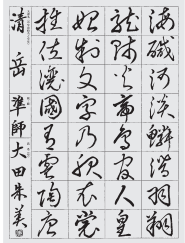 海鹹河淡鱗潛羽翔
龍師火帝鳥官人皇
始制文字乃服衣裳
推位讓國有虞陶唐
清岳 準師 大田朱美